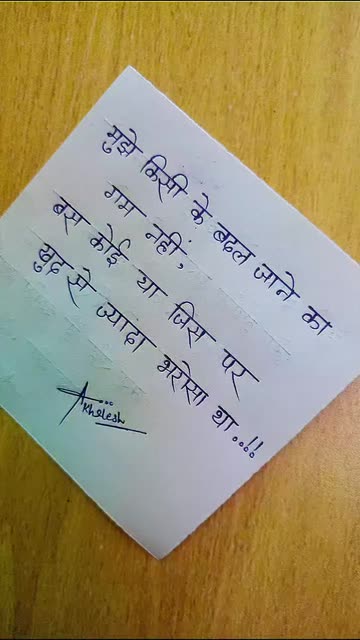 मुझे किसी के बदल जाने का
गम नहीं,
बस कोई था जिस पर
खुद से ज्यादा भरोसा था...!!
Akhelesh